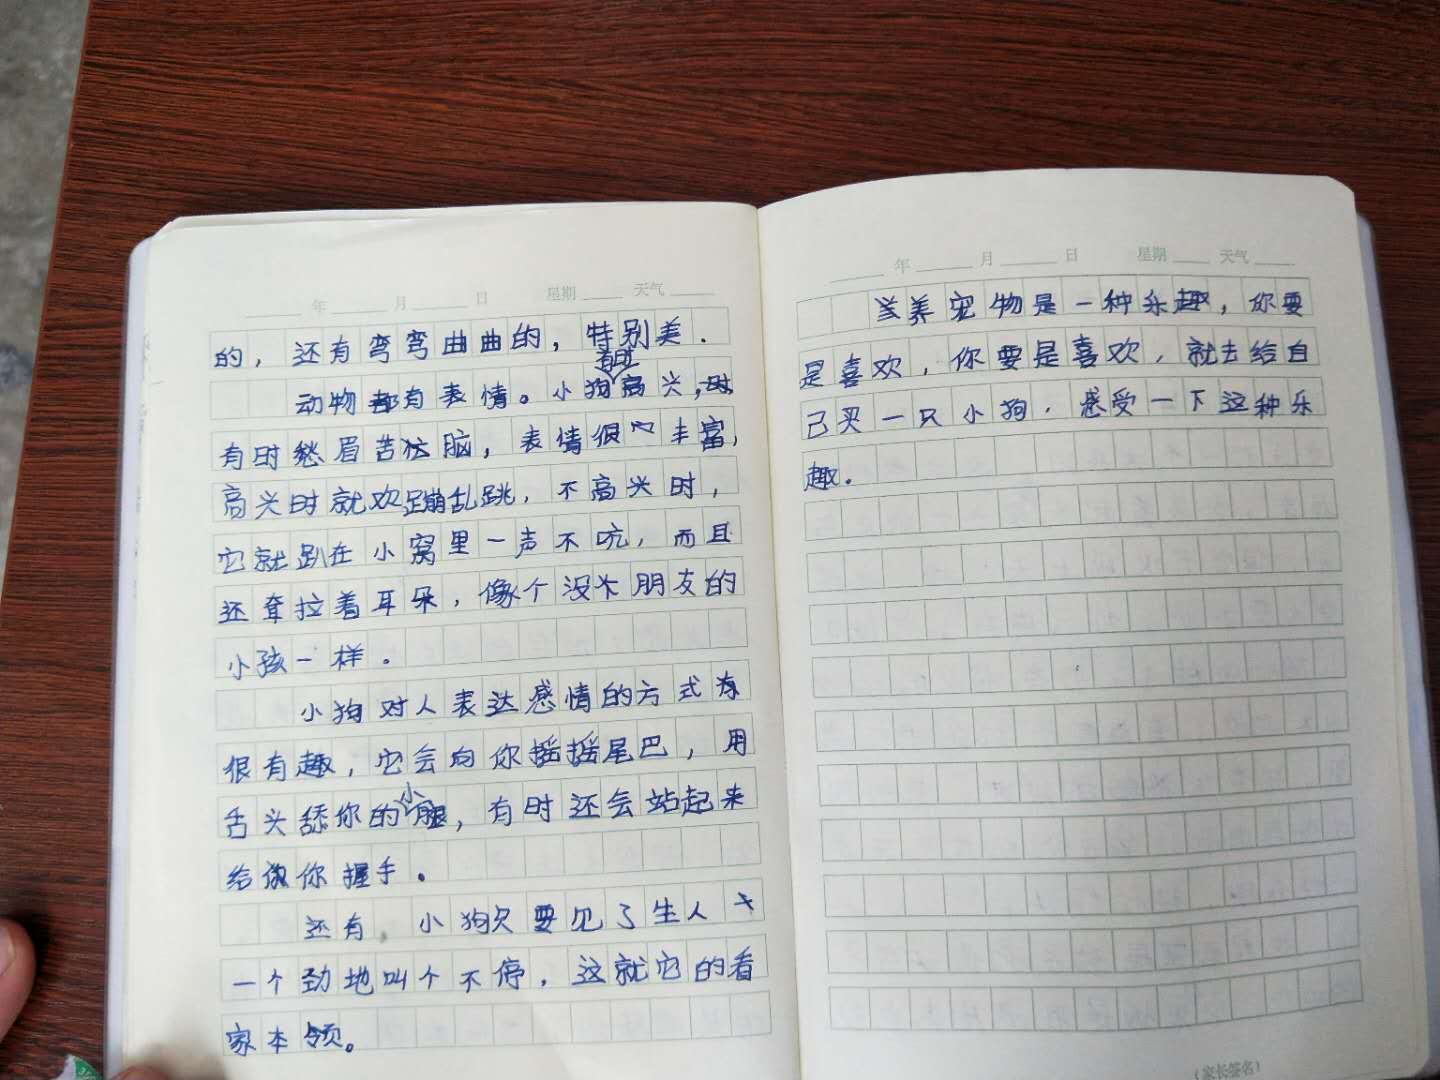 年 月 日 星期 天气
的，还有弯弯曲曲的，特别美．
动物都有表情。小狗有时高兴，
有时愁眉苦脑，表情很丰富，
高兴时就欢蹦乱跳，不高兴时，
它就趴在小窝里一声不吭，而且
还耷拉着耳朵，像个没朋友的
小孩一样．
小狗对人表达感情的方式
很有趣，它会向你摇摇尾巴，用
舌头舔你的小腿，有时还会站起来
给你握手。
还有，小狗只要见了生人
一个劲地叫个不停．这就它的看
家本领。
年 月 日 星期 天气
养宠物是一种乐趣，你要
是喜欢，你要是喜欢，就去给自
己买一只小狗．感受一下这种乐
趣．
（家长签名）